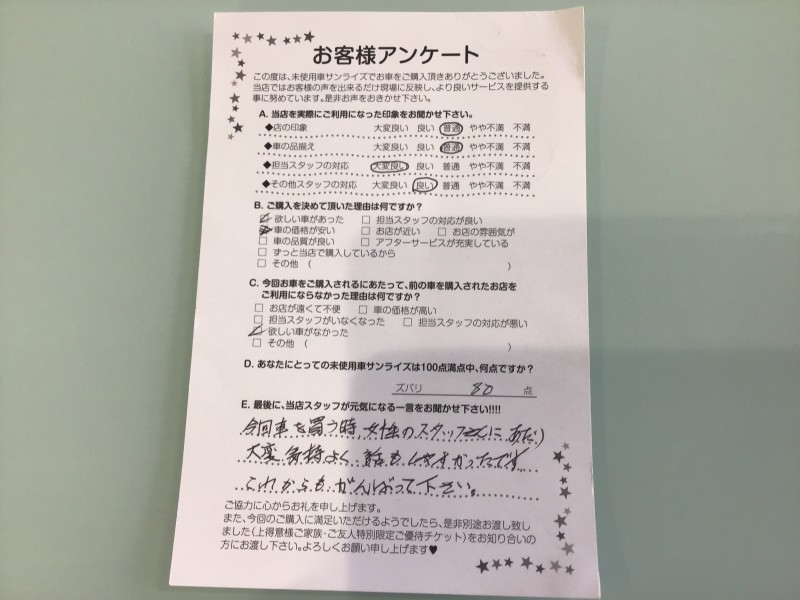 お客様アンケート
この度は、未使用車サンライズでお車をご購入頂きありがとうございました。
当店ではお客様の声を出来るだけ現場に反映し、より良いサービスを提供する
事に努めています。是非お声をおきかせ下さい。
A. 当店を実際にご利用になった印象をお聞かせ下さい。
◆店の印象 大変良い 良い 普通 やや不満 不満
◆車の品揃え 大変良い 良い 普通 やや不満 不満
◆担当スタッフの対応 大変良い 良い 普通 やや不満 不満
◆その他スタッフの対応 大変良い 良い 普通 やや不満 不満
B. ご購入を決めて頂いた理由は何ですか?
欲しい車があった □ 担当スタッフの対応が良い
車の価格が安い □ お店が近い □ お店の雰囲気が
□ 車の品質が良い □ アフターサービスが充実している
□ ずっと当店で購入しているから
□ その他 ( )
C. 今回お車をご購入されるにあたって、前の車を購入されたお店を
ご利用にならなかった理由は何ですか?
□ お店が遠くて不便 □ 車の価格が高い
□ 担当スタッフがいなくなった □ 担当スタッフの対応が悪い
欲しい車がなかった
□ その他 ( )
D. あなたにとっての未使用車サンライズは100点満点中、何点ですか?
ズバリ 80 点
E. 最後に、当店スタッフが元気になる一言をお聞かせ下さい!!!!
今回車を買う時、女性のスタッフさんにあたり
大変気持よく話もしやすかったです。
これからもがんばって下さい。
ご協力に心からお礼を申し上げます。
また、今回のご購入に満足いただけるようでしたら、是非別途お渡し致し
ました(上得意様ご家族・ご友人特別限定ご優待チケット)をお知り合いの
方にお渡し下さい。よろしくお願い申し上げます♥